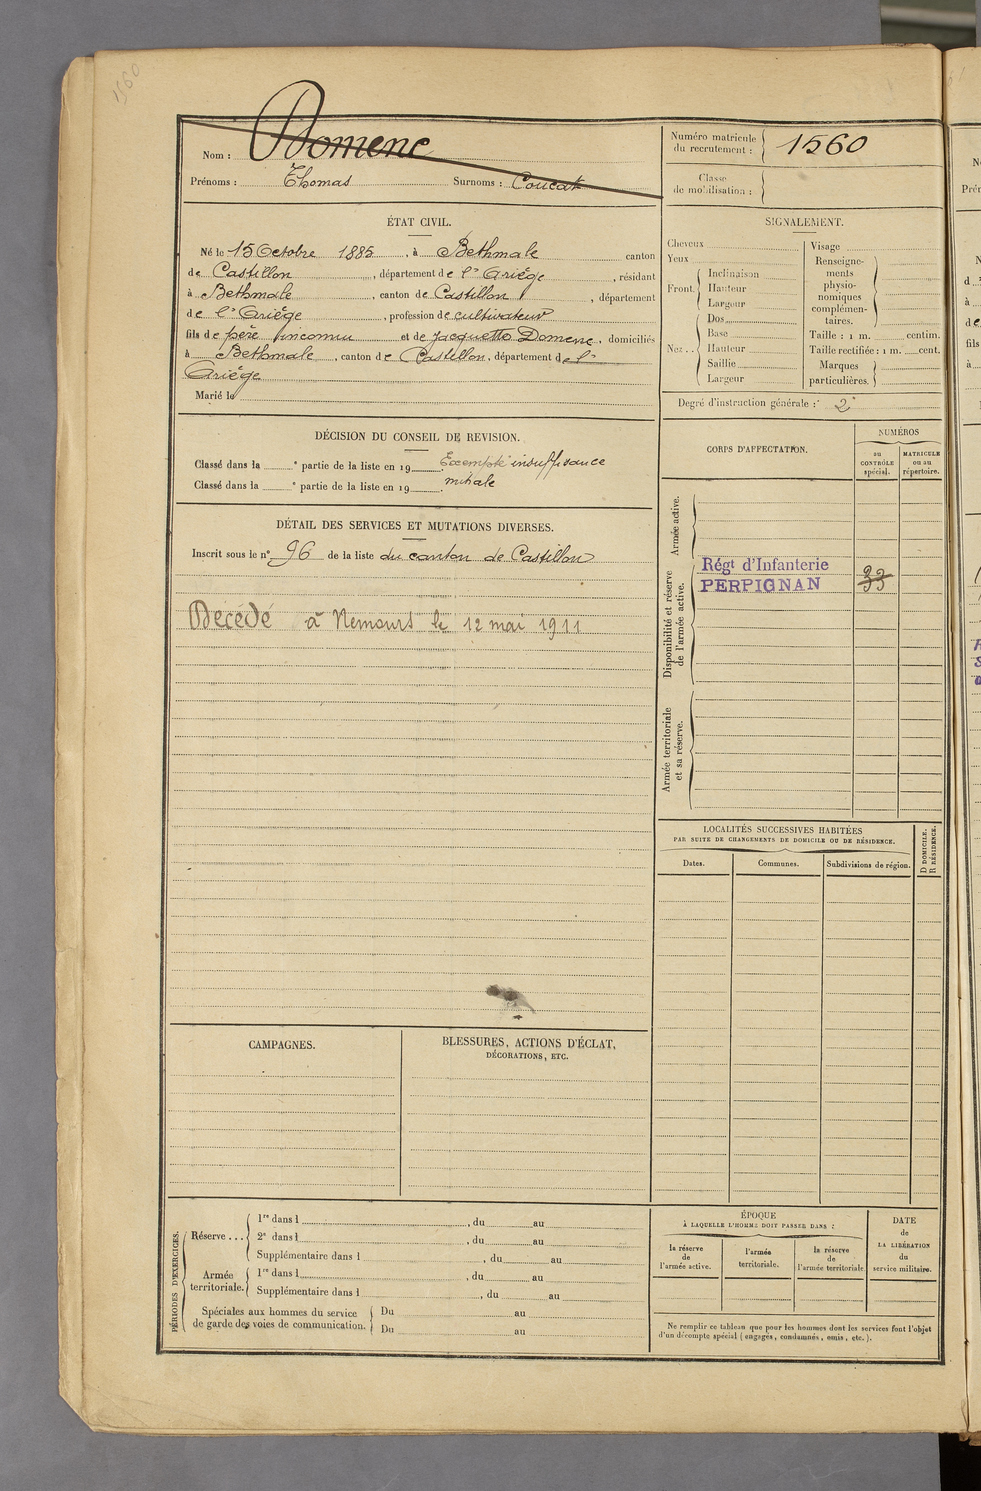 1560
Nom : Domenc
Prénoms : Thomas Surnoms : Coucat
Numéro matricule du recrutement : 1560
Classe de mobilisation :
ÉTAT CIVIL.
Né le 15 Octobre 1885, à Bethmale canton
de Castillon, département de l'Ariége, résidant
à Bethmale, canton de Castillon, département
de l'Ariége, profession de cultivateur
fils de père inconnu et de Jacquette Domenc, domiciliés
à Bethmale, canton de Castillon, département de l'
Ariége
Marié le
SIGNALEMENT.
Cheveux
Yeux
Front. Inclinaison
Hauteur
Largeur
Nez .. Dos
Base
Hauteur
Saillie
Largeur
Visage
Renseigne-
ments
physio-
nomiques
complémen-
taires.
Taille : 1 m. centim.
Taille rectifiée : 1 m. cent.
Marques
particulières.
Degré d'instruction générale : 2
DÉCISION DU CONSEIL DE REVISION.
Classé dans la e partie de la liste en 19 Exempté insuffisance
Classé dans la e partie de la liste en 19 mitrale
DÉTAIL DES SERVICES ET MUTATIONS DIVERSES.
Inscrit sous le n° 96 de la liste du canton de Castillon
Décédé à Nemours le 12 mai 1911
CORPS D'AFFECTATION.
NUMÉROS
au
CONTRÔLE
spécial.
MATRICULE
ou au
répertoire.
Armée active.
Disponibilité et réserve
de l'armée active.
Régt d'Infanterie
PERPIGNAN
33
Armée territoriale
et sa réserve.
LOCALITÉS SUCCESSIVES HABITÉES
PAR SUITE DE CHANGEMENTS DE DOMICILE OU DE RÉSIDENCE.
Dates. Communes. Subdivisions de région.
D DOMICILE.
R RÉSIDENCE.
CAMPAGNES.
BLESSURES, ACTIONS D'ÉCLAT,
DÉCORATIONS, ETC.
PÉRIODES D'EXERCICES.
Réserve ... 1re dans l , du au
2e dans l , du au
Supplémentaire dans l , du au
Armée
territoriale. 1re dans l , du au
Supplémentaire dans l , du au
Spéciales aux hommes du service
de garde des voies de communication. Du au
Du au
ÉPOQUE
À LAQUELLE L'HOMME DOIT PASSER DANS :
la réserve
de
l'armée active.
l'armée
territoriale.
la réserve
de
l'armée territoriale.
DATE
de
LA LIBÉRATION
du
service militaire.
Ne remplir ce tableau que pour les hommes dont les services font l'objet
d'un décompte spécial (engagés, condamnés, omis, etc.).